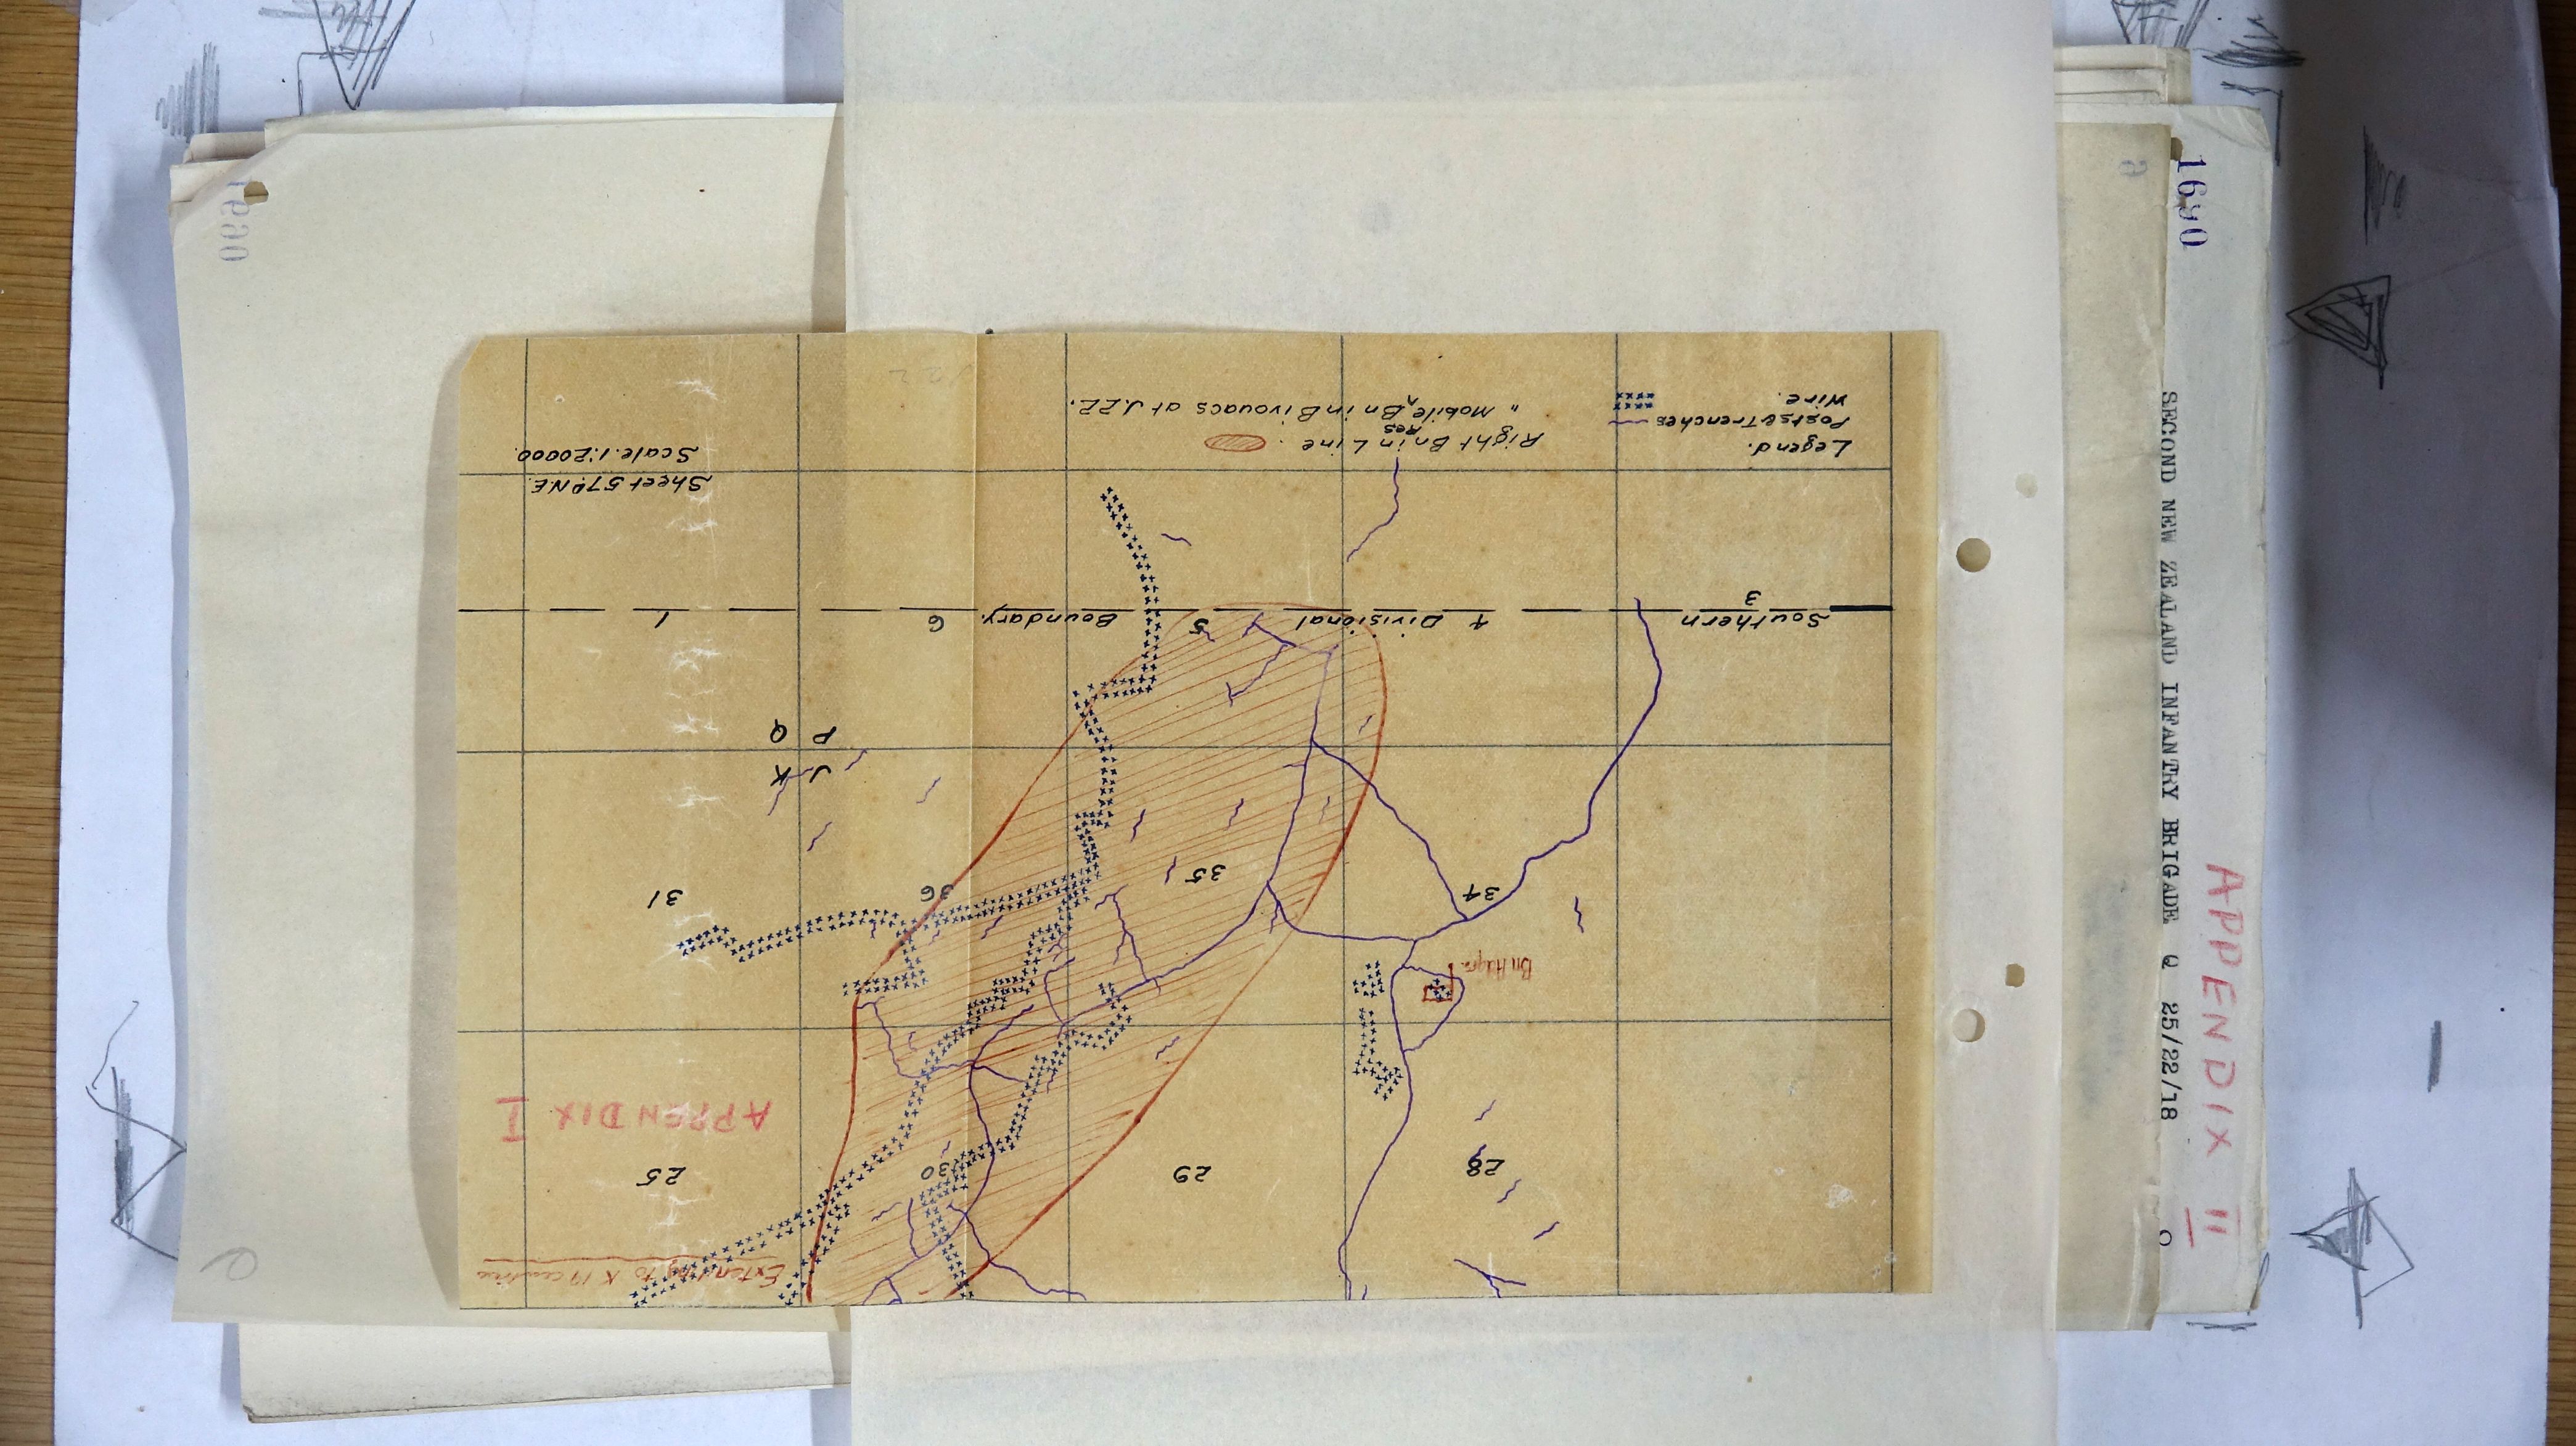 Extending to K 19 central
25
30
29
28
APPENDIX I
Bn Hdqrs.
31
36
35
34
J K
P Q
1
6
5
4
3
Southern Divisional Boundary.
Sheet 57D N.E.
Scale. 1:20000.
Legend.
Posts & Trenches
Wire.
Right Bn in Line.
" Mobile Res Bn in Bivouacs at J.22.
1690
1690
SECOND NEW ZEALAND INFANTRY BRIGADE Q 25/22/18
APPENDIX II